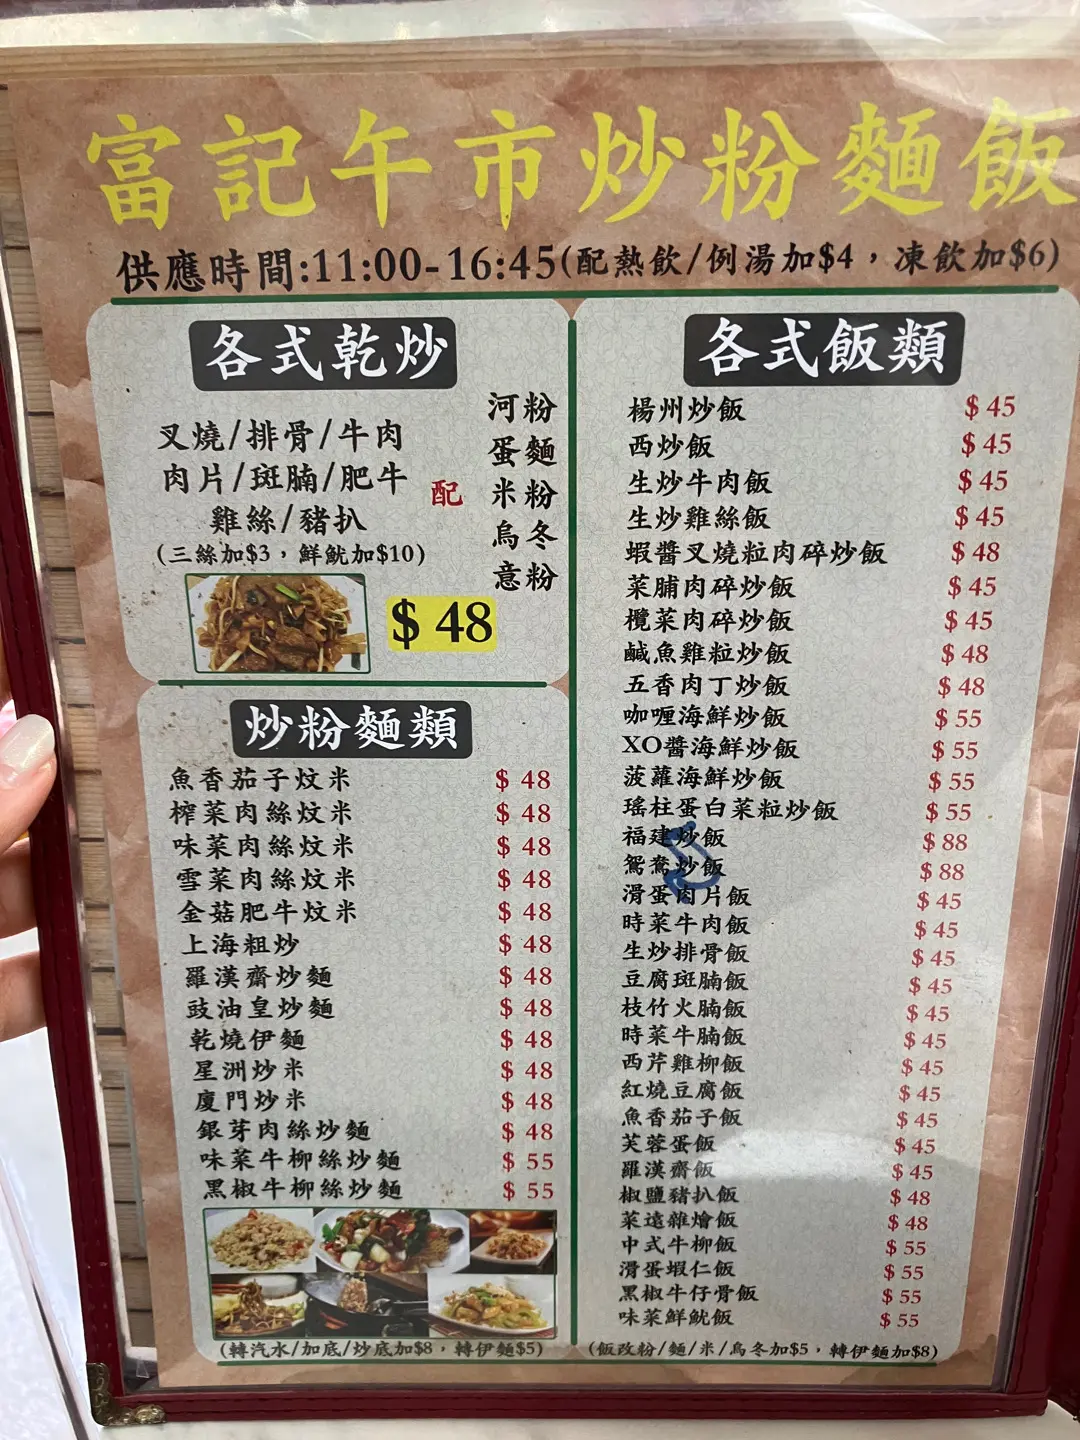 富記午市炒粉麵飯
供應時間:11:00-16:45(配熱飲/例湯加$4，凍飲加$6)
各式乾炒
叉燒/排骨/牛肉
肉片/斑腩/肥牛
雞絲/豬扒
(三絲加$3，鮮魷加$10)
配
河粉
蛋麵
米粉
烏冬
意粉
$ 48
炒粉麵類
魚香茄子炆米 $ 48
榨菜肉絲炆米 $ 48
味菜肉絲炆米 $ 48
雪菜肉絲炆米 $ 48
金菇肥牛炆米 $ 48
上海粗炒 $ 48
羅漢齋炒麵 $ 48
豉油皇炒麵 $ 48
乾燒伊麵 $ 48
星洲炒米 $ 48
廈門炒米 $ 48
銀芽肉絲炒麵 $ 48
味菜牛柳絲炒麵 $ 55
黑椒牛柳絲炒麵 $ 55
(轉汽水/加底/炒底加$8，轉伊麵$5)
各式飯類
楊州炒飯 $ 45
西炒飯 $ 45
生炒牛肉飯 $ 45
生炒雞絲飯 $ 45
蝦醬叉燒粒肉碎炒飯 $ 48
菜脯肉碎炒飯 $ 45
欖菜肉碎炒飯 $ 45
鹹魚雞粒炒飯 $ 48
五香肉丁炒飯 $ 48
咖喱海鮮炒飯 $ 55
XO醬海鮮炒飯 $ 55
菠蘿海鮮炒飯 $ 55
瑤柱蛋白菜粒炒飯 $ 55
福建炒飯 $ 88
鴛鴦炒飯 $ 88
滑蛋肉片飯 $ 45
時菜牛肉飯 $ 45
生炒排骨飯 $ 45
豆腐斑腩飯 $ 45
枝竹火腩飯 $ 45
時菜牛腩飯 $ 45
西芹雞柳飯 $ 45
紅燒豆腐飯 $ 45
魚香茄子飯 $ 45
芙蓉蛋飯 $ 45
羅漢齋飯 $ 45
椒鹽豬扒飯 $ 48
菜遠雜燴飯 $ 48
中式牛柳飯 $ 55
滑蛋蝦仁飯 $ 55
黑椒牛仔骨飯 $ 55
味菜鮮魷飯 $ 55
(飯改粉/麵/米/烏冬加$5，轉伊麵加$8)